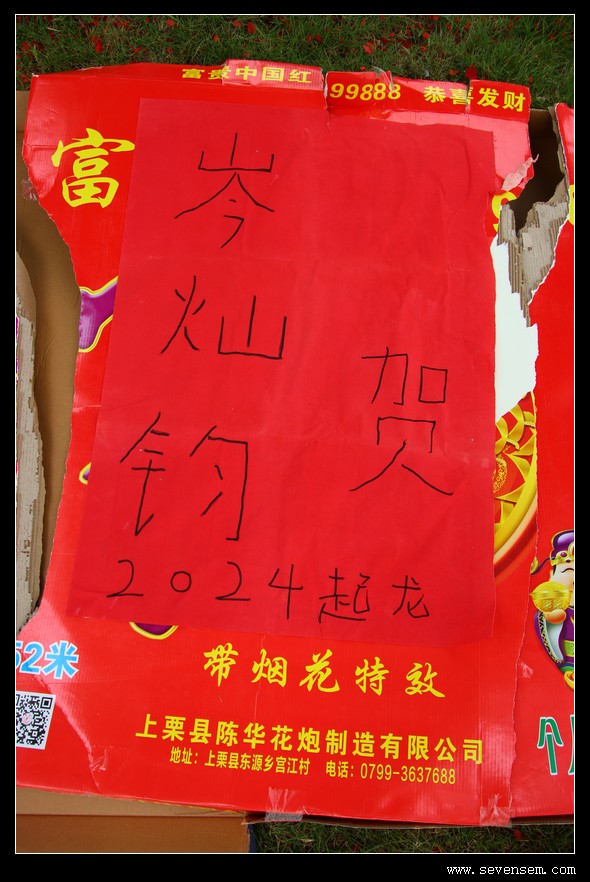 富贵中国红
99888 恭喜发财
富
岑灿钧
贺
2024起龙
52米
带烟花特效
上栗县陈华花炮制造有限公司
地址：上栗县东源乡宫江村 电话：0799-3637688
个
www.sevensem.com